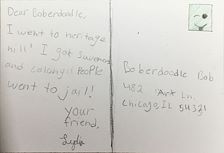 Dear Boberdoodle,
I went to heritage
hill! I got
and colony! People
went to jail!
your
friend,
Lydia
Boberdoodle Bob
482 Art Ln.
Chicago, IL 54321